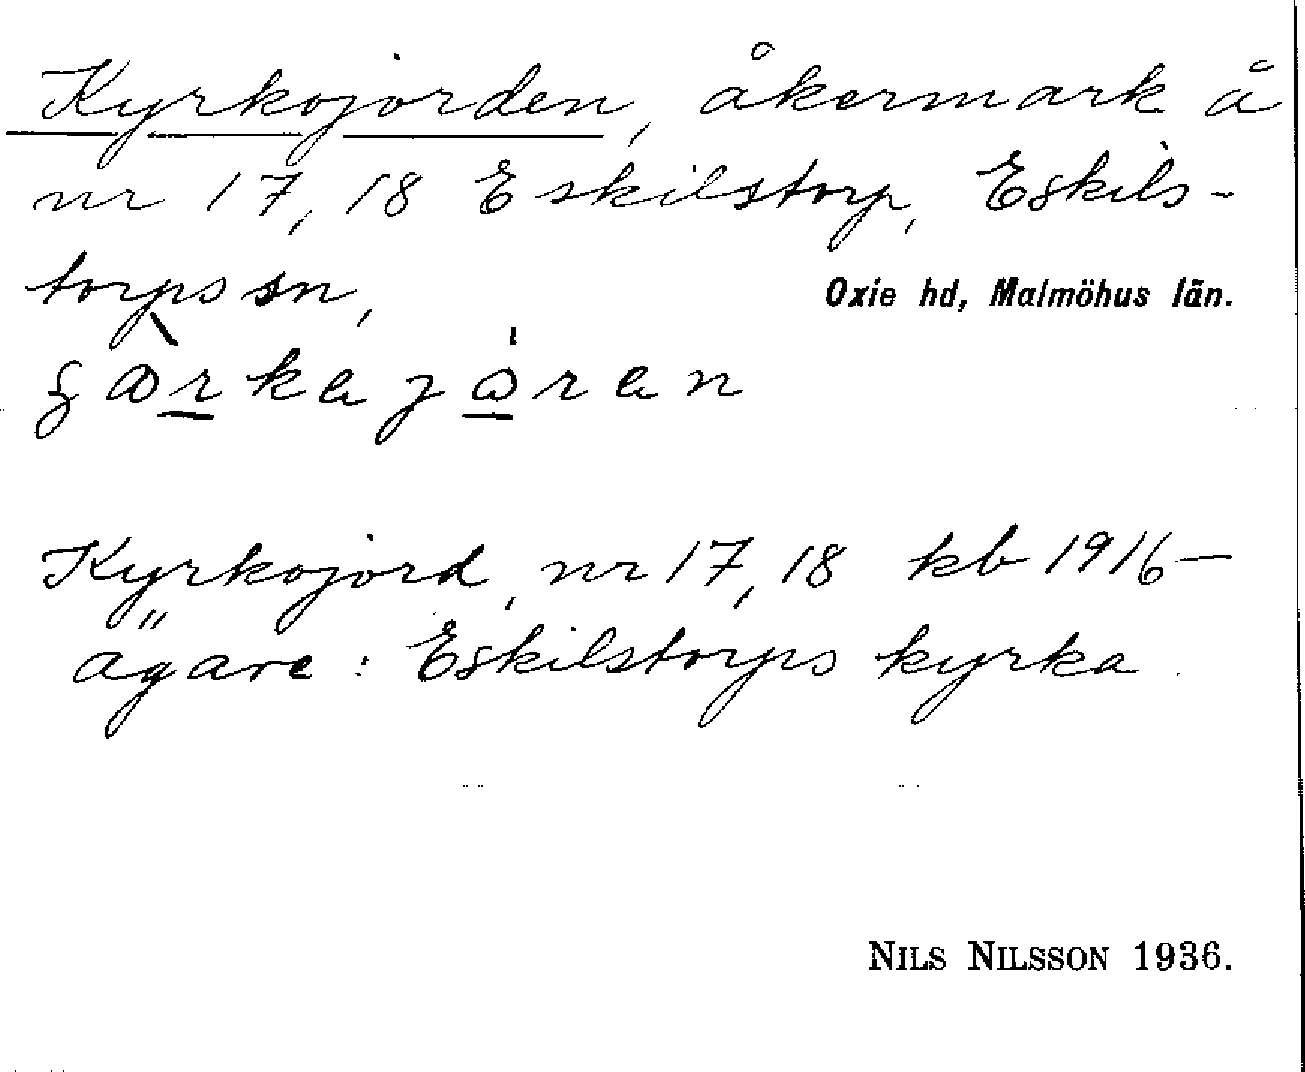 Kyrkojorden, åkermark å
nr 17, 18 Eskilstorp, Eskils-
torps sn, Oxie hd, Malmöhus län.
Kyrkojord, nr 17, 18 kb 1916 —
ägare : Eskilstorps kyrka.
NILS NILSSON 1936.